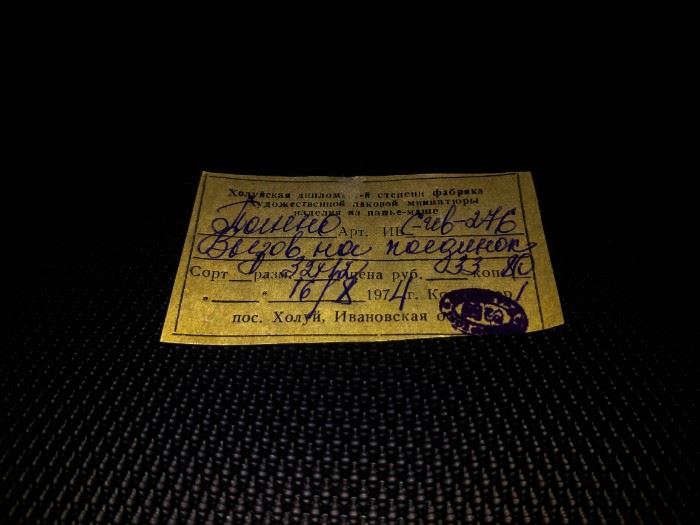 Холуйская диплом -й степени фабрика
художественной лаковой миниатюры
изделия из папье-маше
Панно Арт. ИГ С-ив-276
Вызов на поединок
Сорт разм. цена руб. 233 коп. 80
" " 16/8 1974 г.
пос. Холуй, Ивановская